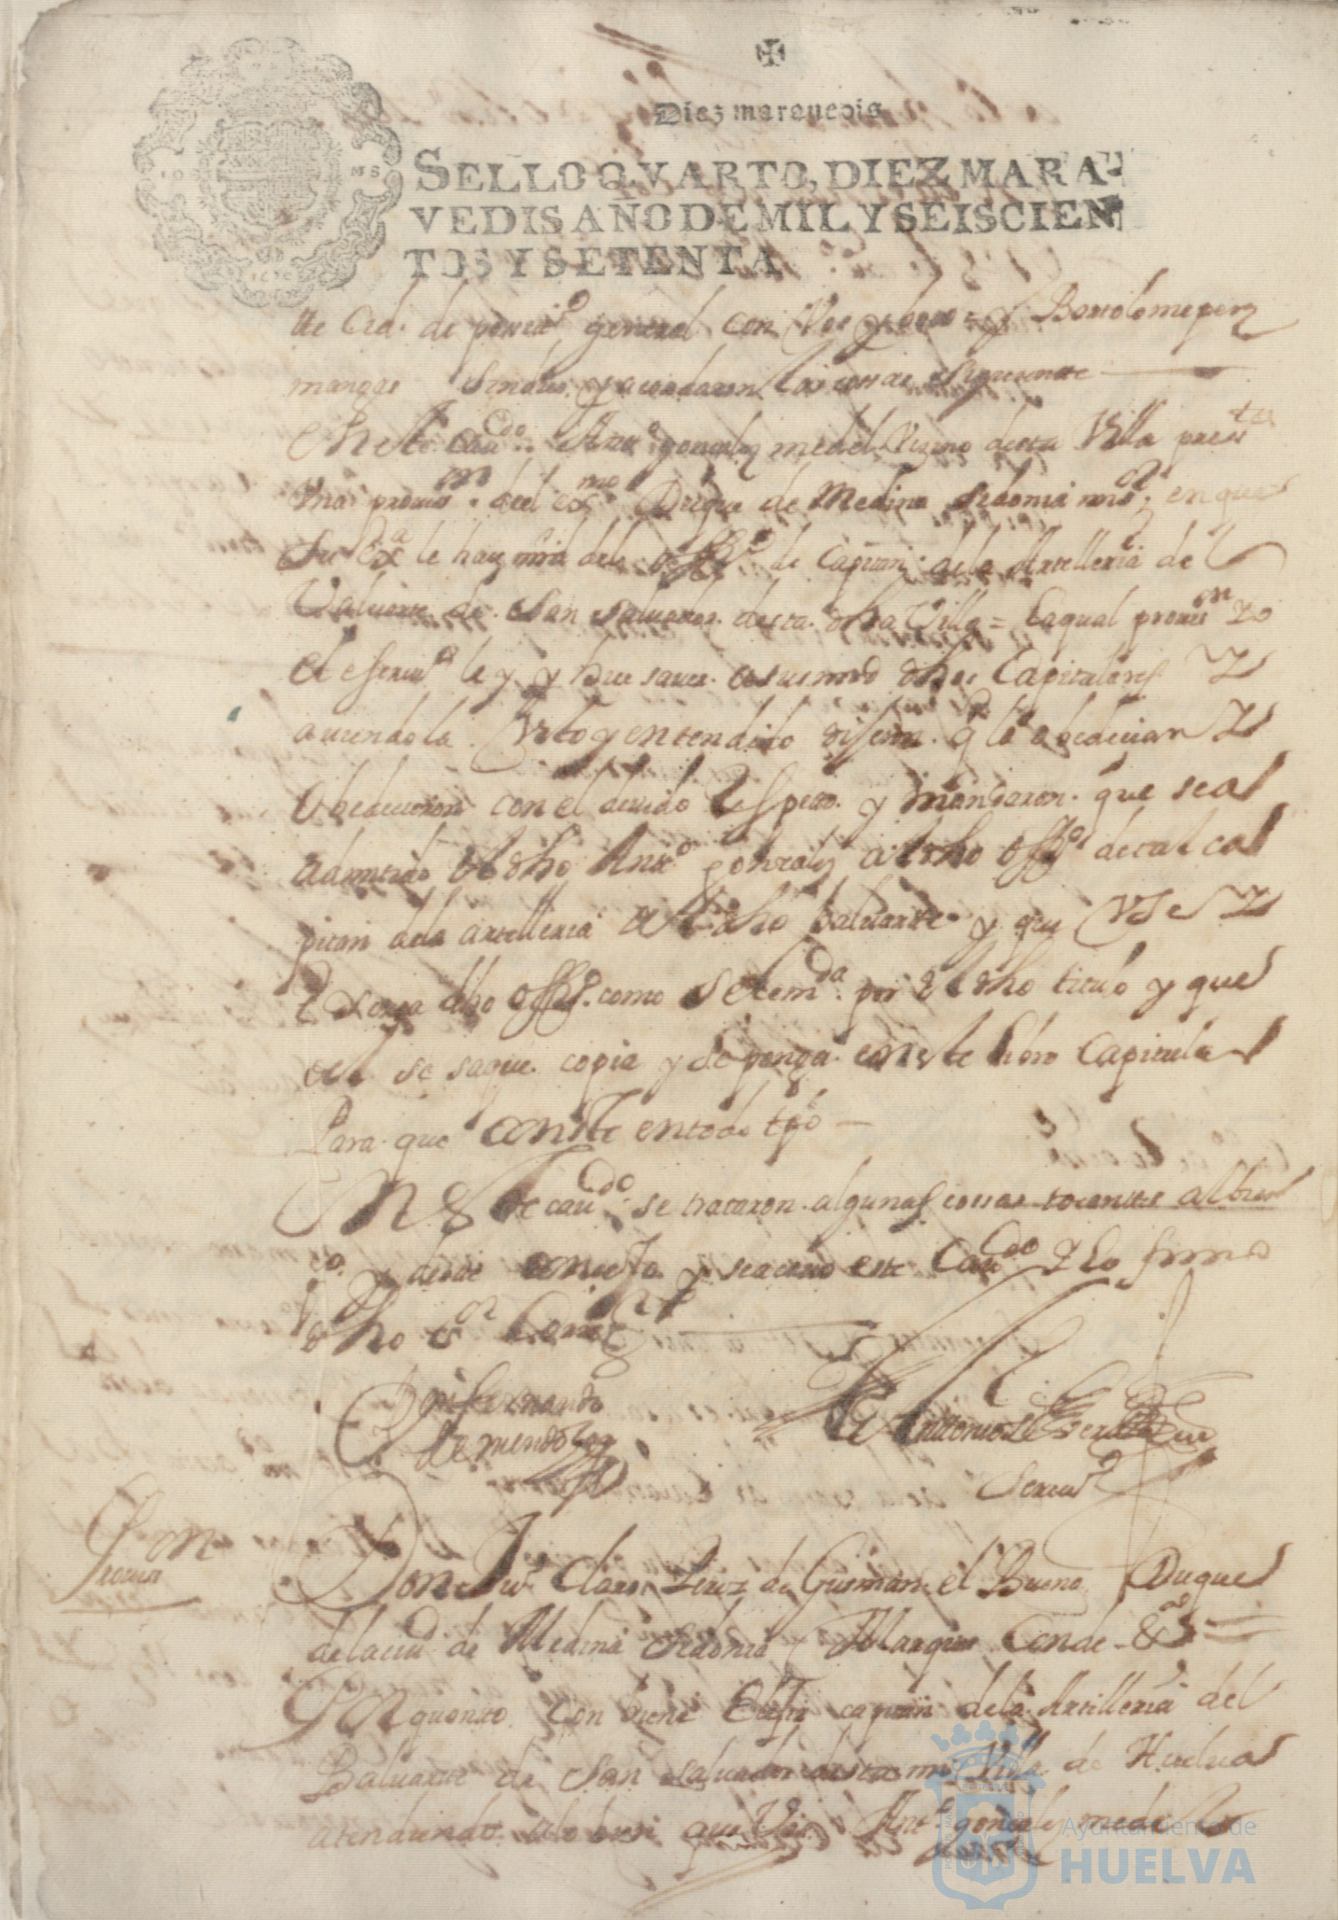 Diez marauedis
SELLO QVARTO, DIEZ MARA-
VEDIS AÑO DE MIL Y SEISCIEN
TOS Y SETENTA
de general con Voz y boto = y Bartolome perez
y acordaron las cossas siguientte
En este caudo. Antto gonzalez medel Vezino desta Villa
Vna prouisn. del exmo Duque de Medina sidonia en que
Su Exa le haze mrd del offiº de Capitan de la Artelleria de
Valuarte de San Saluador desta dha Villa = La qual prouisn Yo
el escriuº ley y hize sauer a sus mrd dhos Capitulares Y
auiendola Visto y entendido dixeron q la obedecian Y
Obedecieron con el deuido Respeto y mandaron que sea
admitido el dho Antº gonzalez al dho offº de tal ca
pitan de la artelleria del dho baluarte y que Vse Y
Exerza dho offiº como se le manda por el dho titulo y que
del se saque copia y se ponga en este libro Capitular
Para que conste en todo tpo
En Este caudo se trataron algunas cossas tocantes al bien
y desde conzejo y se acauo este Caudo Y lo firmo
dho Sr Corregr
Don fernando
de mendoza
Antonio
Scriuº
Prouisn
Don Juº Claros Perez de Gusman el Bueno Duque
de la ciud de Medina Sidonia Marques Conde &ª
Por quanto Conbiene Elejir capitan de la Artilleria del
Baluarte de San Saluador desta mi Villa de Huelua
atendiendo a lo bien que Vos Antº gonzalez medel
Ayuntamiento de
HUELVA